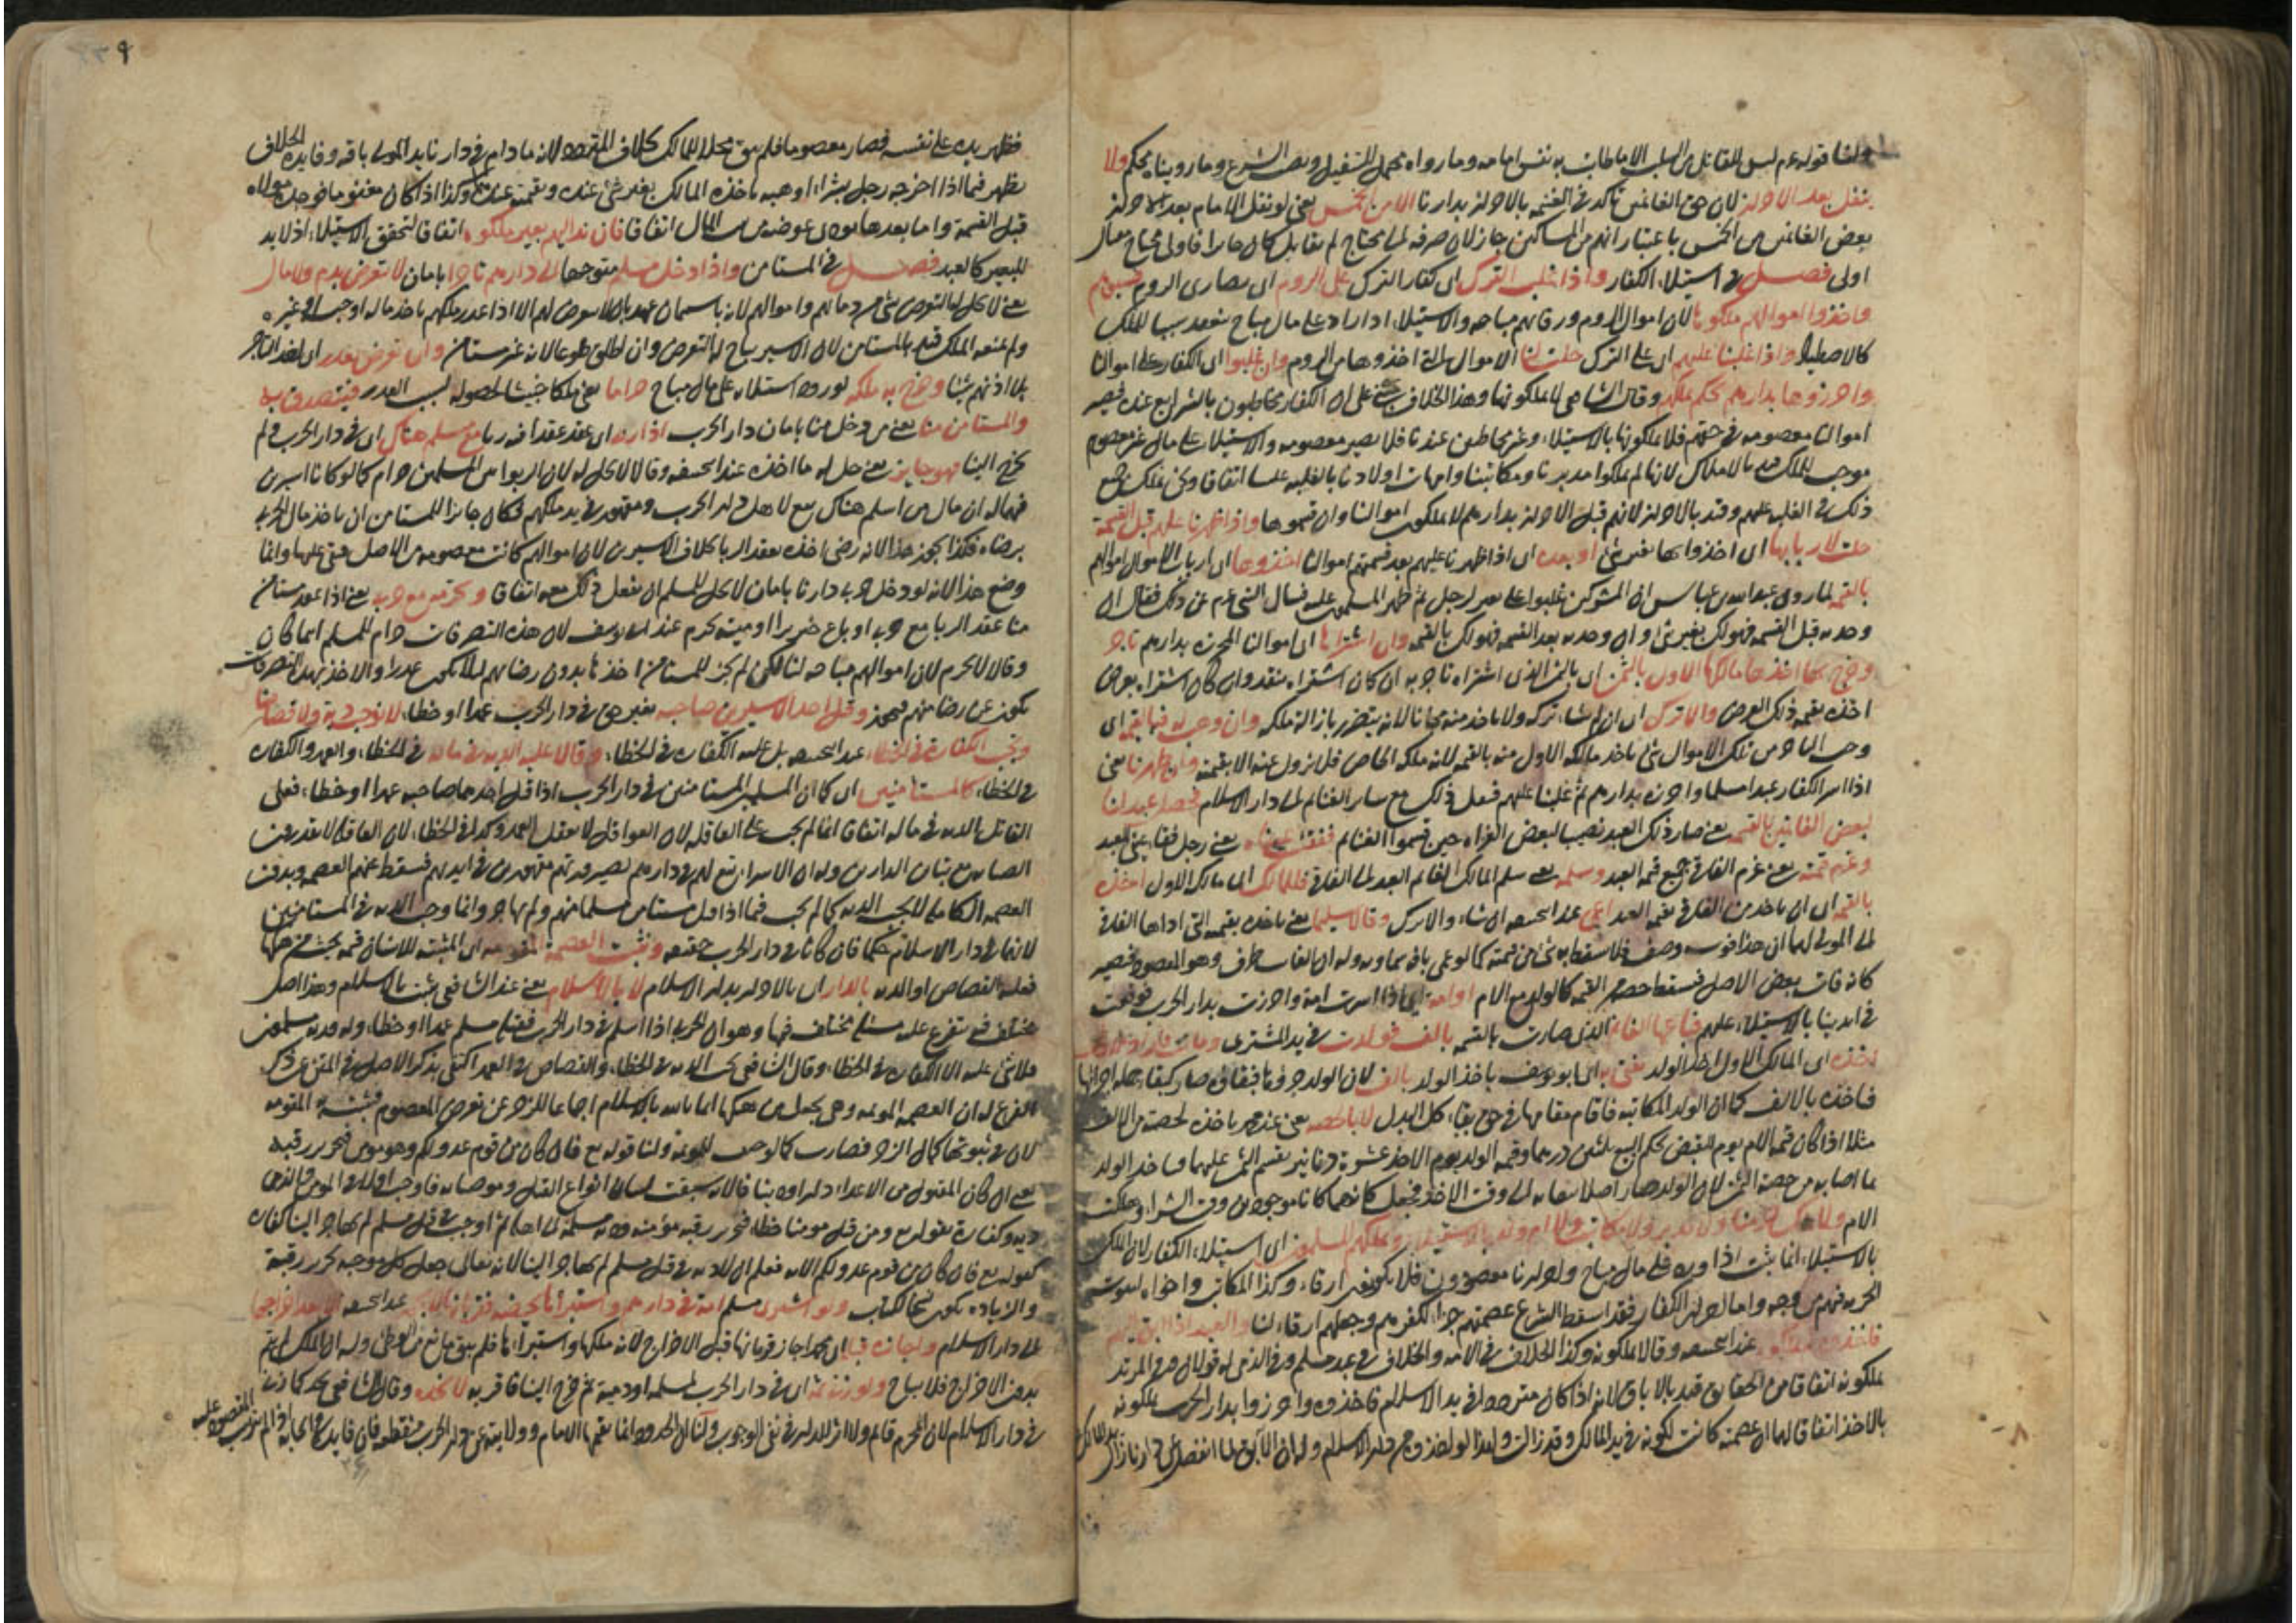 ولنا قوله عم ليس للقاتل من السلب الا ما طابت به نفس امامه وما رواه محمل التنفيل ونصب الشرع وما رويناه محكم ولا
ينفل بعد الاحراز لان حق الغانمين تاكد في الغنيمه بالاحراز بدارنا الا من الخمس يعني لو نفل الامام بعد الاحراز
بعض الغانمين من الخمس باعتبار انهم من المساكين جاز لان صرفه الى محتاج لم يقاتل كان جائزا فالى محتاج مقاتل
اولى فصل في استيلاء الكفار واذا غلب الترك اى كفار الترك على الروم اى نصارى الروم فسبوهم
واخذوا اموالهم ملكوها لان اموال الروم ورقابهم مباحه والاستيلاء اذا ورد على مال مباح ينعقد سببا للملك
كالاصطياد واذا غلبنا عليهم اى على الترك حلت لنا الاموال التى اخذوها من الروم وان غلبوا اى الكفار على اموالنا
واحرزوها بدارهم نحكم بملكهم وقال الشافعى لا يملكونها وهذا الخلاف مبنى على ان الكفار مخاطبون بالشرايع عنده فيصير
اموالنا معصومه في حقهم فلا يملكونها بالاستيلاء وغير مخاطبين عندنا فلا يصير معصومه والاستيلاء على مال غير معصوم
موجب للملك قيد بالاملاك لانهم لم يملكوا مدبرنا ومكاتبنا وامهات اولادنا بالغلبه علينا اتفاقا ونحن نملك جميع
ذلك في الغلبه عليهم وقيد بالاحراز لانهم قبل الاحراز بدارهم لا يملكون اموالنا وان قسموها واذا ظهرنا عليهم قبل القسمة
حلت لاربابها اى اخذوا بها بغير شئ او بعده اى اذا ظهرنا عليهم بعد قسمتهم اموالنا اخذوها اى ارباب الاموال اموالهم
بالقيمة لما روى عبد الله بن عباس ان المشركين غلبوا على بعير لرجل ثم ظهر المسلمون عليه فسال النبى عم عن ذلك فقال ان
وجدته قبل القسمه فهو لك بغير شئ وان وجدته بعد القسمه فهو لك بالقيمه وان اشتراها اى اموالنا المحرزه بدارهم تاجر
وخرج بها اخذها مالكها الاول بالثمن اى بالثمن الذى اشتراه تاجر به ان كان اشتراه بنقد وان كان اشتراه بعرض
اخذه بقيمه ذلك العرض والا ترك اى ان لم يشاء تركه ولا ياخذ منه مجانا لانه يتضرر بازالة ملكه وان وهبت له فبالقيمة اى
وهب التاجر من تلك الاموال شئ ياخذ مالكه الاول منه بالقيمه لانه ملكه الخاص فلا يزول عنه الا بقيمته وان ظهرنا يعنى
اذا اسر الكفار عبدا مسلما واحرزه بدارهم ثم غلبنا عليهم فنقل ذلك مع سائر الغنائم الى دار الاسلام فحصل عبد لنا
لبعض الغانمين بالقيمه يعنى صار ذلك العبد نصيبا لبعض الغزاه حين قسموا الغنائم ففقئت عيناه يعنى رجل فقاء عينى العبد
وغرم قيمته يعنى غرم الفاقئ جميع قيمه العبد وسلمه يعنى سلم المالك الغانم العبد الى الفاقئ فللمالك اى مالك الاول اخذه
بالقيمه اى ان ياخذ من الفاقئ بقيمه العبد اعمى عند ابى حنيفه ان شاء والا ترك وقالا سليما يعنى ياخذه بقيمته التى اداها الفاقئ
الى المولى لهما ان هذا فوت وصف فلا يسقط به شئ من قيمته كما لو عمى بافه سماويه وله ان الفائت طرف وهو المقصود فيصير
كانه فات بعض الاصل فسقط حصته من القيمه كالولد مع الام او امة اى اذا اسرت امة واحرزت بدار الحرب فوقعت
في ايدينا بالاستيلاء عليهم فباعها الغانم الذى صارت بالقسمه بالف فولدت في يد المشترى وماتت فاراد المولى
اخذه اى المالك الاول اخذ الولد يفتى به اى ابو يوسف ياخذ الولد بالف لان الولد جزؤها فبقاؤه صار كبقاء جمله اجزائها
فياخذه بالالف كما ان الولد المكاتبه فاقام مقامها في حق بقاء كل البدل لا بالحصه يعنى عند محمد ياخذه بحصته من الالف
مثلا اذا كان قيمه الام يوم القبض بحكم البيع ثلثين درهما وقيمه الولد يوم الاخذ عشرة دنانير يقسم الثمن عليهما وياخذ الولد
بما اصابه من حصة الثمن لان الولد صار اصلا ببقائه الى وقت الاخذ فيجعل كانهما كانا موجودين وقت الشراء وهلكت
الام ولا يملك حر منا ولا مدبر ولا مكاتب ولا ام ولد بالاستيلاء ويملكهم المسلمون اى استيلاء الكفار لان الملك
بالاستيلاء انما يثبت اذا ورد على مال مباح واحرارنا معصومون فلا يكونون ارقاء وكذا المكاتب واخواه لثبوت
الحريه فيهم من وجه واما احرار الكفار فقد اسقط الشرع عصمتهم جزاء لكفرهم وجعلهم ارقاء لنا والعبد اذا ابق اليهم
فاخذوه لم يملكوه عند ابى حنيفه وقالا يملكونه وكذا الخلاف في الامه والخلاف في عبد مسلم وفي الذمى له قولان وفى المرتد
يملكونه اتفاقا من الحقائق قيد بالاباق لانه اذا كان مترددا في يد الاسلام فاخذوه واحرزوا بدار الحرب يملكونه
بالاخذ اتفاقا لهما ان عصمته كانت لكونه في يد المالك وقد زالت ولهذا لو اخذوه من دار الاسلام وله ان الآبق لما انفصل عن دارنا زال يد المالك
فظهر يده على نفسه فصار معصوما فلم يبق محلا للمالك بخلاف المتردد لانه ما دام في دارنا يد المولى باقيه وفايدة الخلاف
يظهر فيما اذا اخرجه رجل بشراء او هبه ياخذه المالك بغير شئ عنده وبقيمته عندهما وكذا اذا كان مغنوما فوجده مولاه
قبل القسمة واما بعدها يودى عوضه من بيت المال اتفاقا فان ند اليهم بعير ملكوه اتفاقا لتحقق الاستيلاء اذ لا يد
للبعير كالعبد فصل في المستامن واذا دخل مسلم متوجها الى دارهم تاجرا بامان لا يتعرض بدم ولا مال
يعنى لا يحل له التعرض بشئ من دمائهم واموالهم لانه باستيمانه عهد بان لا يتعرض لهم الا اذا غدر ملكهم باخذ ماله او حبسه او غيره
ولم يمنعه الملك قيد بالمستامن لان الاسير يباح له التعرض وان اطلق طوعا لانه غير مستامن وان تعرض بغدر اى اخذ التاجر
بلا اذنهم شيئا وخرج به ملكه لوروده استيلاء على مال مباح حراما يعنى ملكا خبيثا لحصوله بسبب الغدر فيتصدق به
والمستامن منا يعنى من دخل منا بامان دار الحرب اذا ربى اى عقد عقدا فيه ربا مع مسلم هناك اى في دار الحرب ولم
يخرج الينا فهو جايز يعنى حل له ما اخذه عند ابى حنيفه وقالا لا يحل له لان الربوا من المسلمين حرام كما لو كانا اسيرين
فيها له ان مال من اسلم هناك تبع لاهل دار الحرب ومقهور في يد ملكهم فكان جائزا للمستامن ان ياخذ مال الحربى
برضاه فكذا يجوز هذا لانه رضى اخذه بعقد الربا بخلاف الاسيرين لان اموالهم كانت معصومه في الاصل فبقى عليها وانما
وضع هذا لانه لو دخل حربى دارنا بامان لا يحل للمسلم ان يفعل ذلك معه اتفاقا ويحرمه مع حربى يعنى اذا عقد مستامن
منا عقد الربا مع حربى او باع خنزيرا او ميته يحرم عند ابى يوسف لان هذه التصرفات حرام للمسلم اينما كان
وقالا لا يحرم لان اموالهم مباحه لنا لكن لم يجز للمستامن اخذها بدون رضاهم لئلا يكون غدرا والاخذ بهذه التصرفات
يكون عن رضا منهم فيجوز وقتل احد الاسيرين صاحبه بغير حق في دار الحرب عمدا او خطاء لا يوجب دية ولا قصاصا
ويجب الكفارة في الخطاء عند ابى حنيفه بل عليه الكفاره في الخطاء وقالا عليه الديه في ماله في الخطاء والعمد والكفاره
في الخطاء كالمستامنين اى كما ان المسلمين المستامنين في دار الحرب اذا قتل احدهما صاحبه عمدا او خطاء فعلى
القاتل الديه في ماله اتفاقا انما لم يجب على العاقله لان العواقل لا تعقل العمد وكذا في الخطاء لان العاقله لا يقدرون
الصيانه مع تباين الدارين وله ان الاسراء تبع لهم في دارهم لصيرورتهم مقهورين في ايديهم فسقط عنهم العصمه وبدون
العصمه الكامله لا يجب الديه كما لم يجب فيما اذا قتل مستامن مسلما منهم ولم يهاجر وانما وجب الديه في المستامنين
لانهما في دار الاسلام حكما فان كانا في دار الحرب حقيقه ويثبت العصمة المقومه اى المثبته للانسان قيمه بحيث من هتكها
فعليه القصاص او الديه بالدار اى بالاحراز بدار الاسلام لا بالاسلام يعنى عند الشافعى يثبت بالاسلام وهذا اصل
مختلف فيه يتفرع عليه مسئله مختلف فيها وهو ان الحربى اذا اسلم في دار الحرب فقتله مسلم عمدا او خطاء وله ورثه مسلمون
فلا شئ عليه الا الكفاره في الخطاء وقال الشافعى يجب الديه في الخطاء والقصاص في العمد اكتفى بذكر الاصل في المتن عن ذكر
الفرع له ان العصمه المؤثمه وهى يجعل من هتكها آثما ثابته بالاسلام اجماعا للزجر عن تعرض المعصوم فيثبت به المقومه
لان في ثبوتها كمال الزجر فصارت كالوصف للمؤثمه ولنا قوله تع فان كان من قوم عدو لكم وهو مؤمن فتحرير رقبه
يعنى ان كان المقتول من الاعداء دار او دينا فالآيه سيقت لبيان انواع القتل وموجباته فاوجب اولا في المؤمن والذمى
ديه وكفارة بقوله تع ومن قتل مؤمنا خطاء فتحرير رقبه مؤمنه وديه مسلمه الى اهله ثم اوجب في قتل مسلم لم يهاجر الينا كفاره
بقوله تع فان كان من قوم عدو لكم الايه فعلم ان لا ديه في قتل مسلم لم يهاجر الينا لانه تعالى جعل كل موجبه تحرير رقبة
والزياده يكون نسخا للكتاب ولو اشترى مسلم امة في دارهم واستبراها بحيضه فقربانها لا يجوز عند ابى حنيفه الا بعد اخراجها
الى دار الاسلام واجازه قبله اى محمد اجاز قربانها قبل الاخراج لانه ملكها واستبراءها فلم يبق مانع من الوطئ وله ان الملك لم يتم
بدون الاخراج فلا يباح ولو زنى ثمه اى في دار الحرب بمسلمه او ذمية ثم خرج الينا فاقر به لا نحده وقال الشافعى يحد كما زنى
في دار الاسلام لان المحرم قائم ولا اثر للدار في نفى الوجوب ولنا ان الحدود انما يقيمها الامام وولايته عن دار الحرب منقطعه فان فايدته في ايجابه اذا لم يترتب المقصود عليه